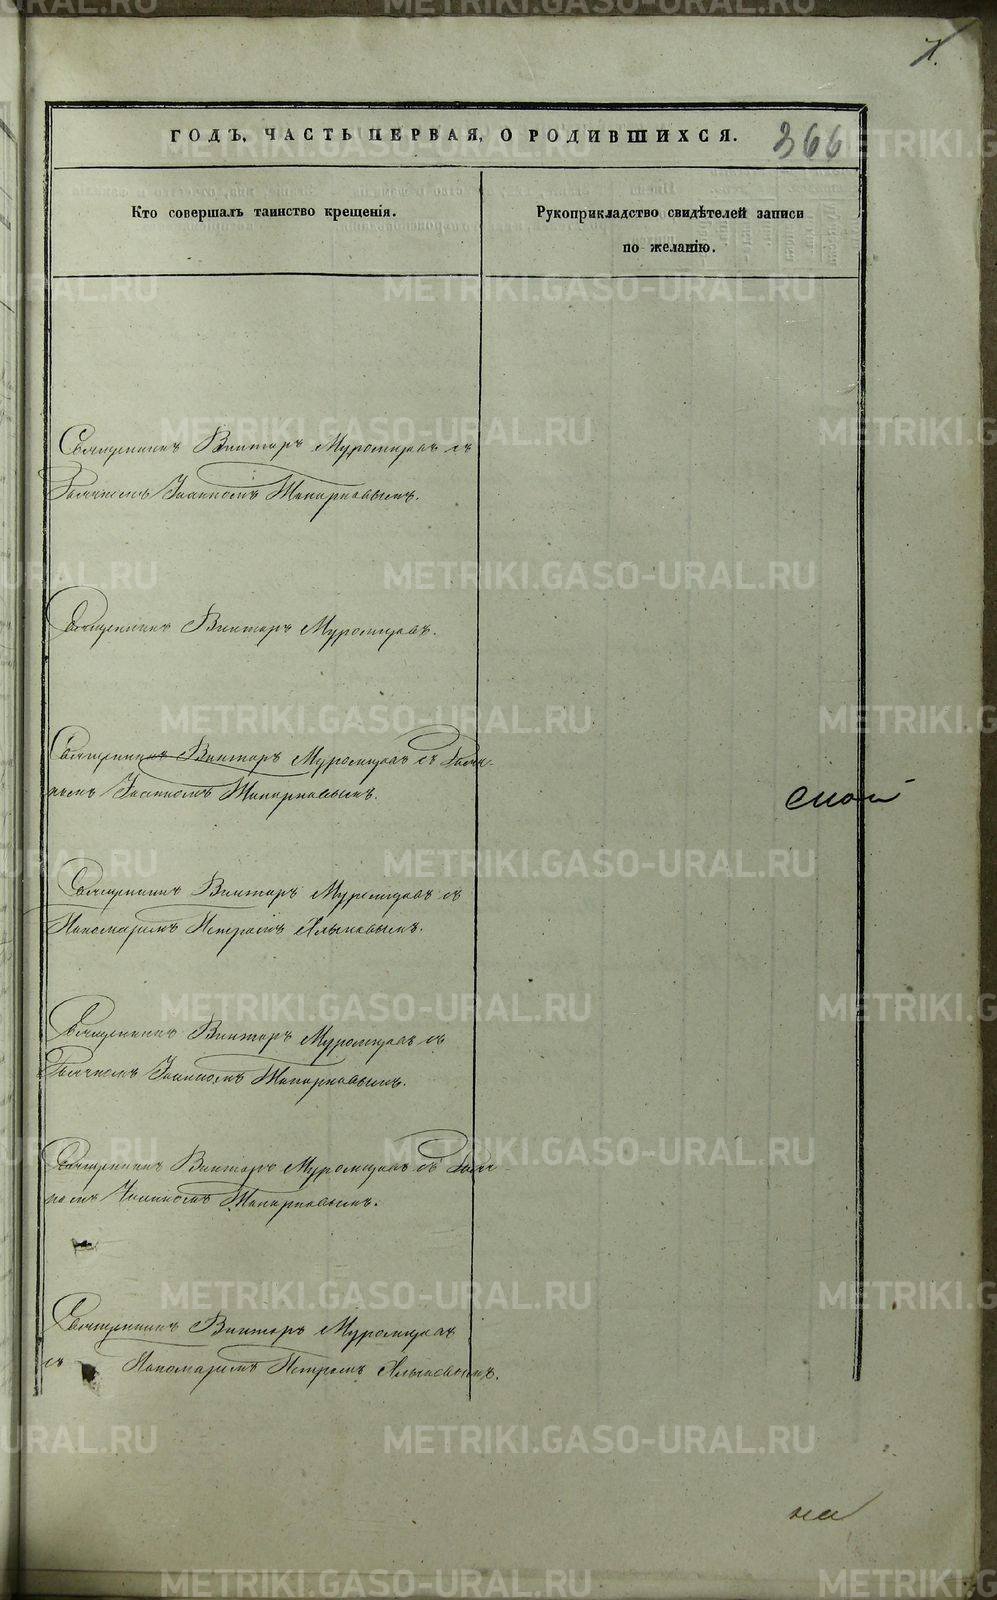 7.
ГОДЪ, ЧАСТЬ ПЕРВАЯ, О РОДИВШИХСЯ.
366
Кто совершалъ таинство крещенія.
Рукоприкладство свидѣтелей записи
по желанію.
Священникъ Викторъ Муромцовъ съ
Дьячкомъ Іоанномъ Топорковымъ.
Священникъ Викторъ Муромцовъ.
Священникъ Викторъ Муромцовъ съ Дьяч-
комъ Іоанномъ Топорковымъ.
ской
Священникъ Викторъ Муромцовъ съ
Пономаремъ Петромъ
Священникъ Викторъ Муромцовъ съ
Дьячкомъ Іоанномъ Топорковымъ.
Священникъ Викторъ Муромцовъ съ Дьяч-
комъ Іоанномъ Топорковымъ.
Священникъ Викторъ Муромцовъ
съ Пономаремъ Петромъ
на
METRIKI.GASO-URAL.RU